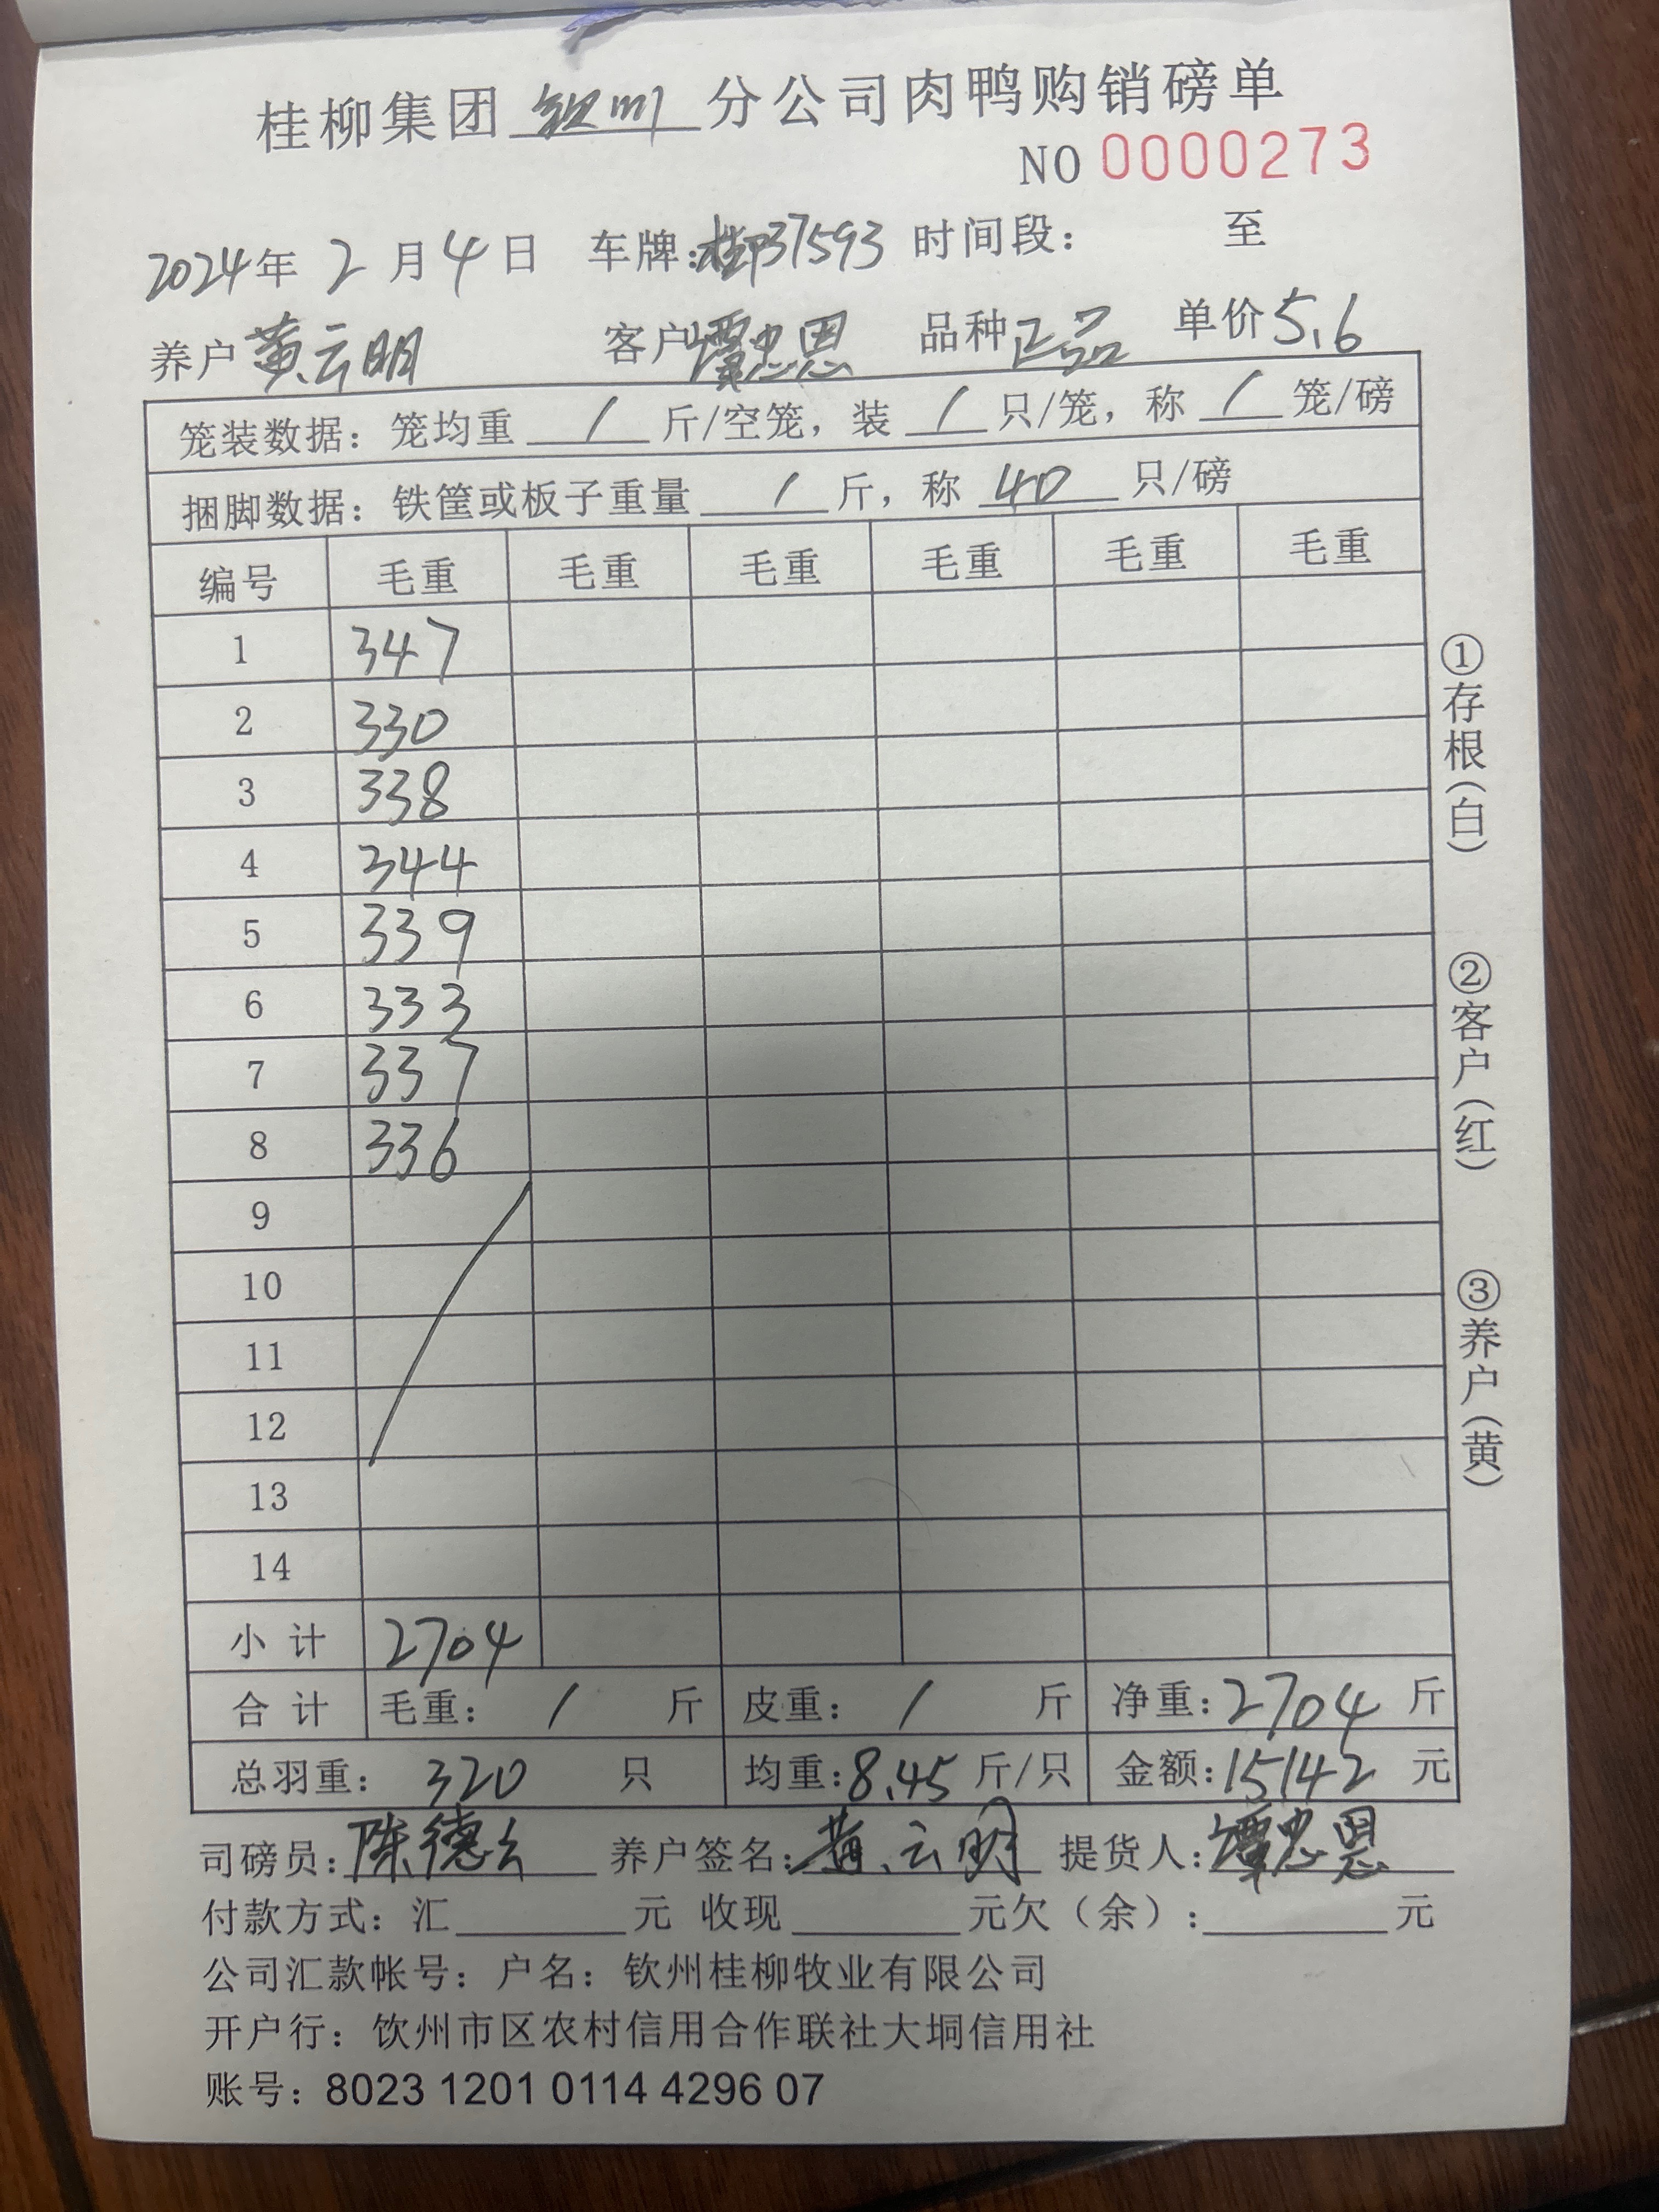 桂柳集团 钦州 分公司肉鸭购销磅单
NO 0000273
2024年 2 月 4 日 车牌:桂P37593 时间段: 至
养户 黄云明 客户 谭忠恩 品种 正品 单价 5.6
笼装数据: 笼均重 / 斤/空笼, 装 / 只/笼, 称 / 笼/磅
捆脚数据: 铁筐或板子重量 / 斤, 称 40 只/磅
编号 毛重 毛重 毛重 毛重 毛重 毛重
1 347
2 330
3 338
4 344
5 339
6 333
7 337
8 336
9
10
11
12
13
14
小计 2704
合计 毛重: / 斤 皮重: / 斤 净重: 2704 斤
总羽重: 320 只 均重: 8.45 斤/只 金额: 15142 元
司磅员: 陈德 养户签名: 黄云明 提货人: 谭忠恩
付款方式: 汇 元 收现 元欠(余): 元
公司汇款帐号: 户名: 钦州桂柳牧业有限公司
开户行: 饮州市区农村信用合作联社大垌信用社
账号: 8023 1201 0114 4296 07
①存根(白)
②客户(红)
③养户(黄)